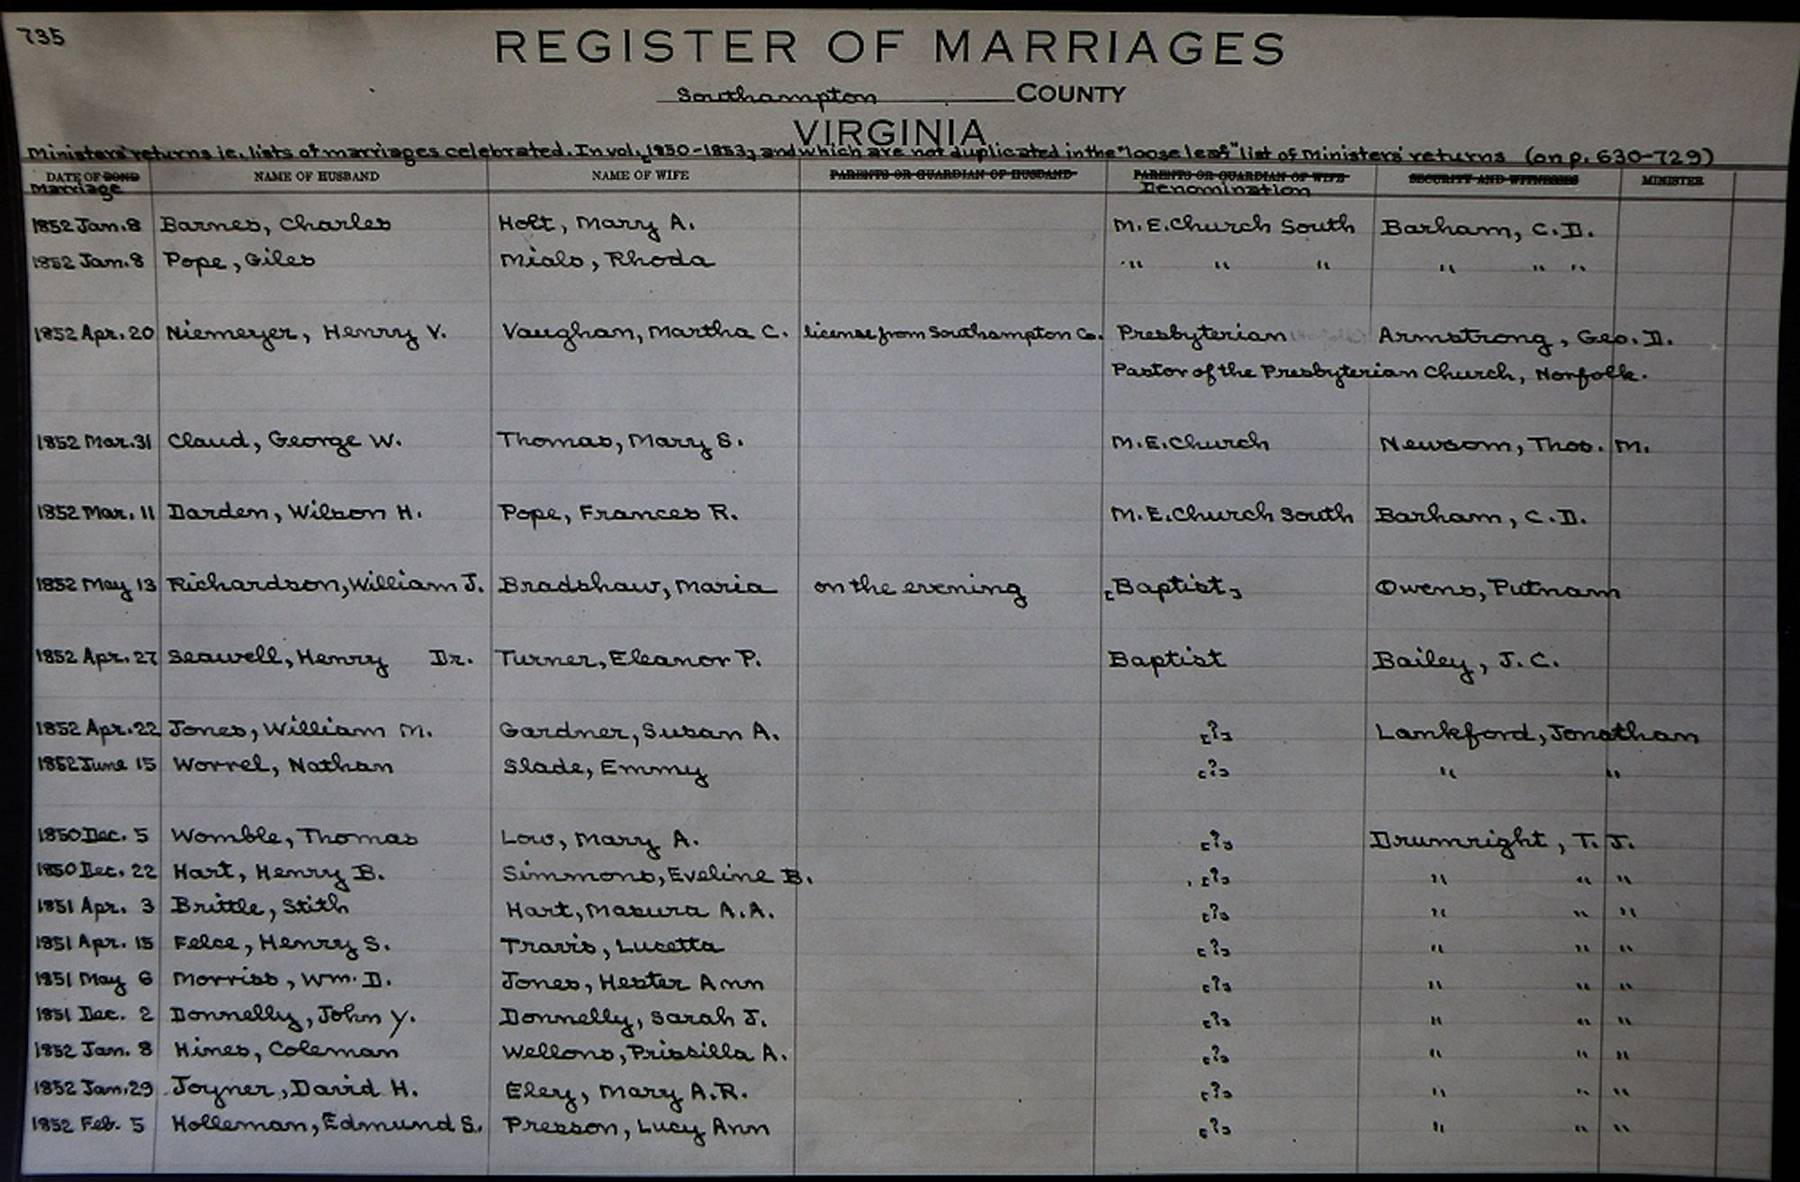 735
REGISTER OF MARRIAGES
Southampton COUNTY
VIRGINIA
Ministers' returns ie. lists of marriages celebrated. In vol. [1850-1853] and which are not duplicated in the "loose leaf" list of ministers' returns (on p. 630-729)
DATE OF BOND NAME OF HUSBAND NAME OF WIFE PARENTS OR GUARDIAN OF HUSBAND PARENTS OR GUARDIAN OF WIFE SECURITY AND WITNESSES MINISTER
Marriage Denomination
1852 Jan. 8 Barnes, Charles Holt, Mary A. M.E. Church South Barham, C.D.
1852 Jan. 8 Pope, Giles Mials, Rhoda " " " " " "
1852 Apr. 20 Niemeyer, Henry V. Vaughan, Martha C. license from Southampton Co. Presbyterian Armstrong, Geo. D.
Pastor of the Presbyterian Church, Norfolk.
1852 Mar. 31 Claud, George W. Thomas, Mary S. M.E. Church Newsom, Thos. M.
1852 Mar. 11 Darden, Wilson H. Pope, Frances R. M.E. Church South Barham, C.D.
1852 May 13 Richardson, William J. Bradshaw, Maria on the evening [Baptist] Owens, Putnam
1852 Apr. 27 Seawell, Henry Dr. Turner, Eleanor P. Baptist Bailey, J.C.
1852 Apr. 22 Jones, William M. Gardner, Susan A. [?] Lankford, Jonathan
1852 June 15 Worrel, Nathan Slade, Emmy [?] " "
1850 Dec. 5 Womble, Thomas Low, Mary A. [?] Drumright, T. J.
1850 Dec. 22 Hart, Henry B. Simmons, Eveline B. [?] " " "
1851 Apr. 3 Brittle, Stith Hart, Masura A.A. [?] " " "
1851 Apr. 15 Felce, Henry S. Travis, Lucetta [?] " " "
1851 May 6 Morriss, Wm. D. Jones, Hester Ann [?] " " "
1851 Dec. 2 Donnelly, John Y. Donnelly, Sarah J. [?] " " "
1852 Jan. 8 Hines, Coleman Wellons, Prissilla A. [?] " " "
1852 Jan. 29 Joyner, David H. Eley, Mary A.R. [?] " " "
1852 Feb. 5 Holleman, Edmund S. Presson, Lucy Ann [?] " " "